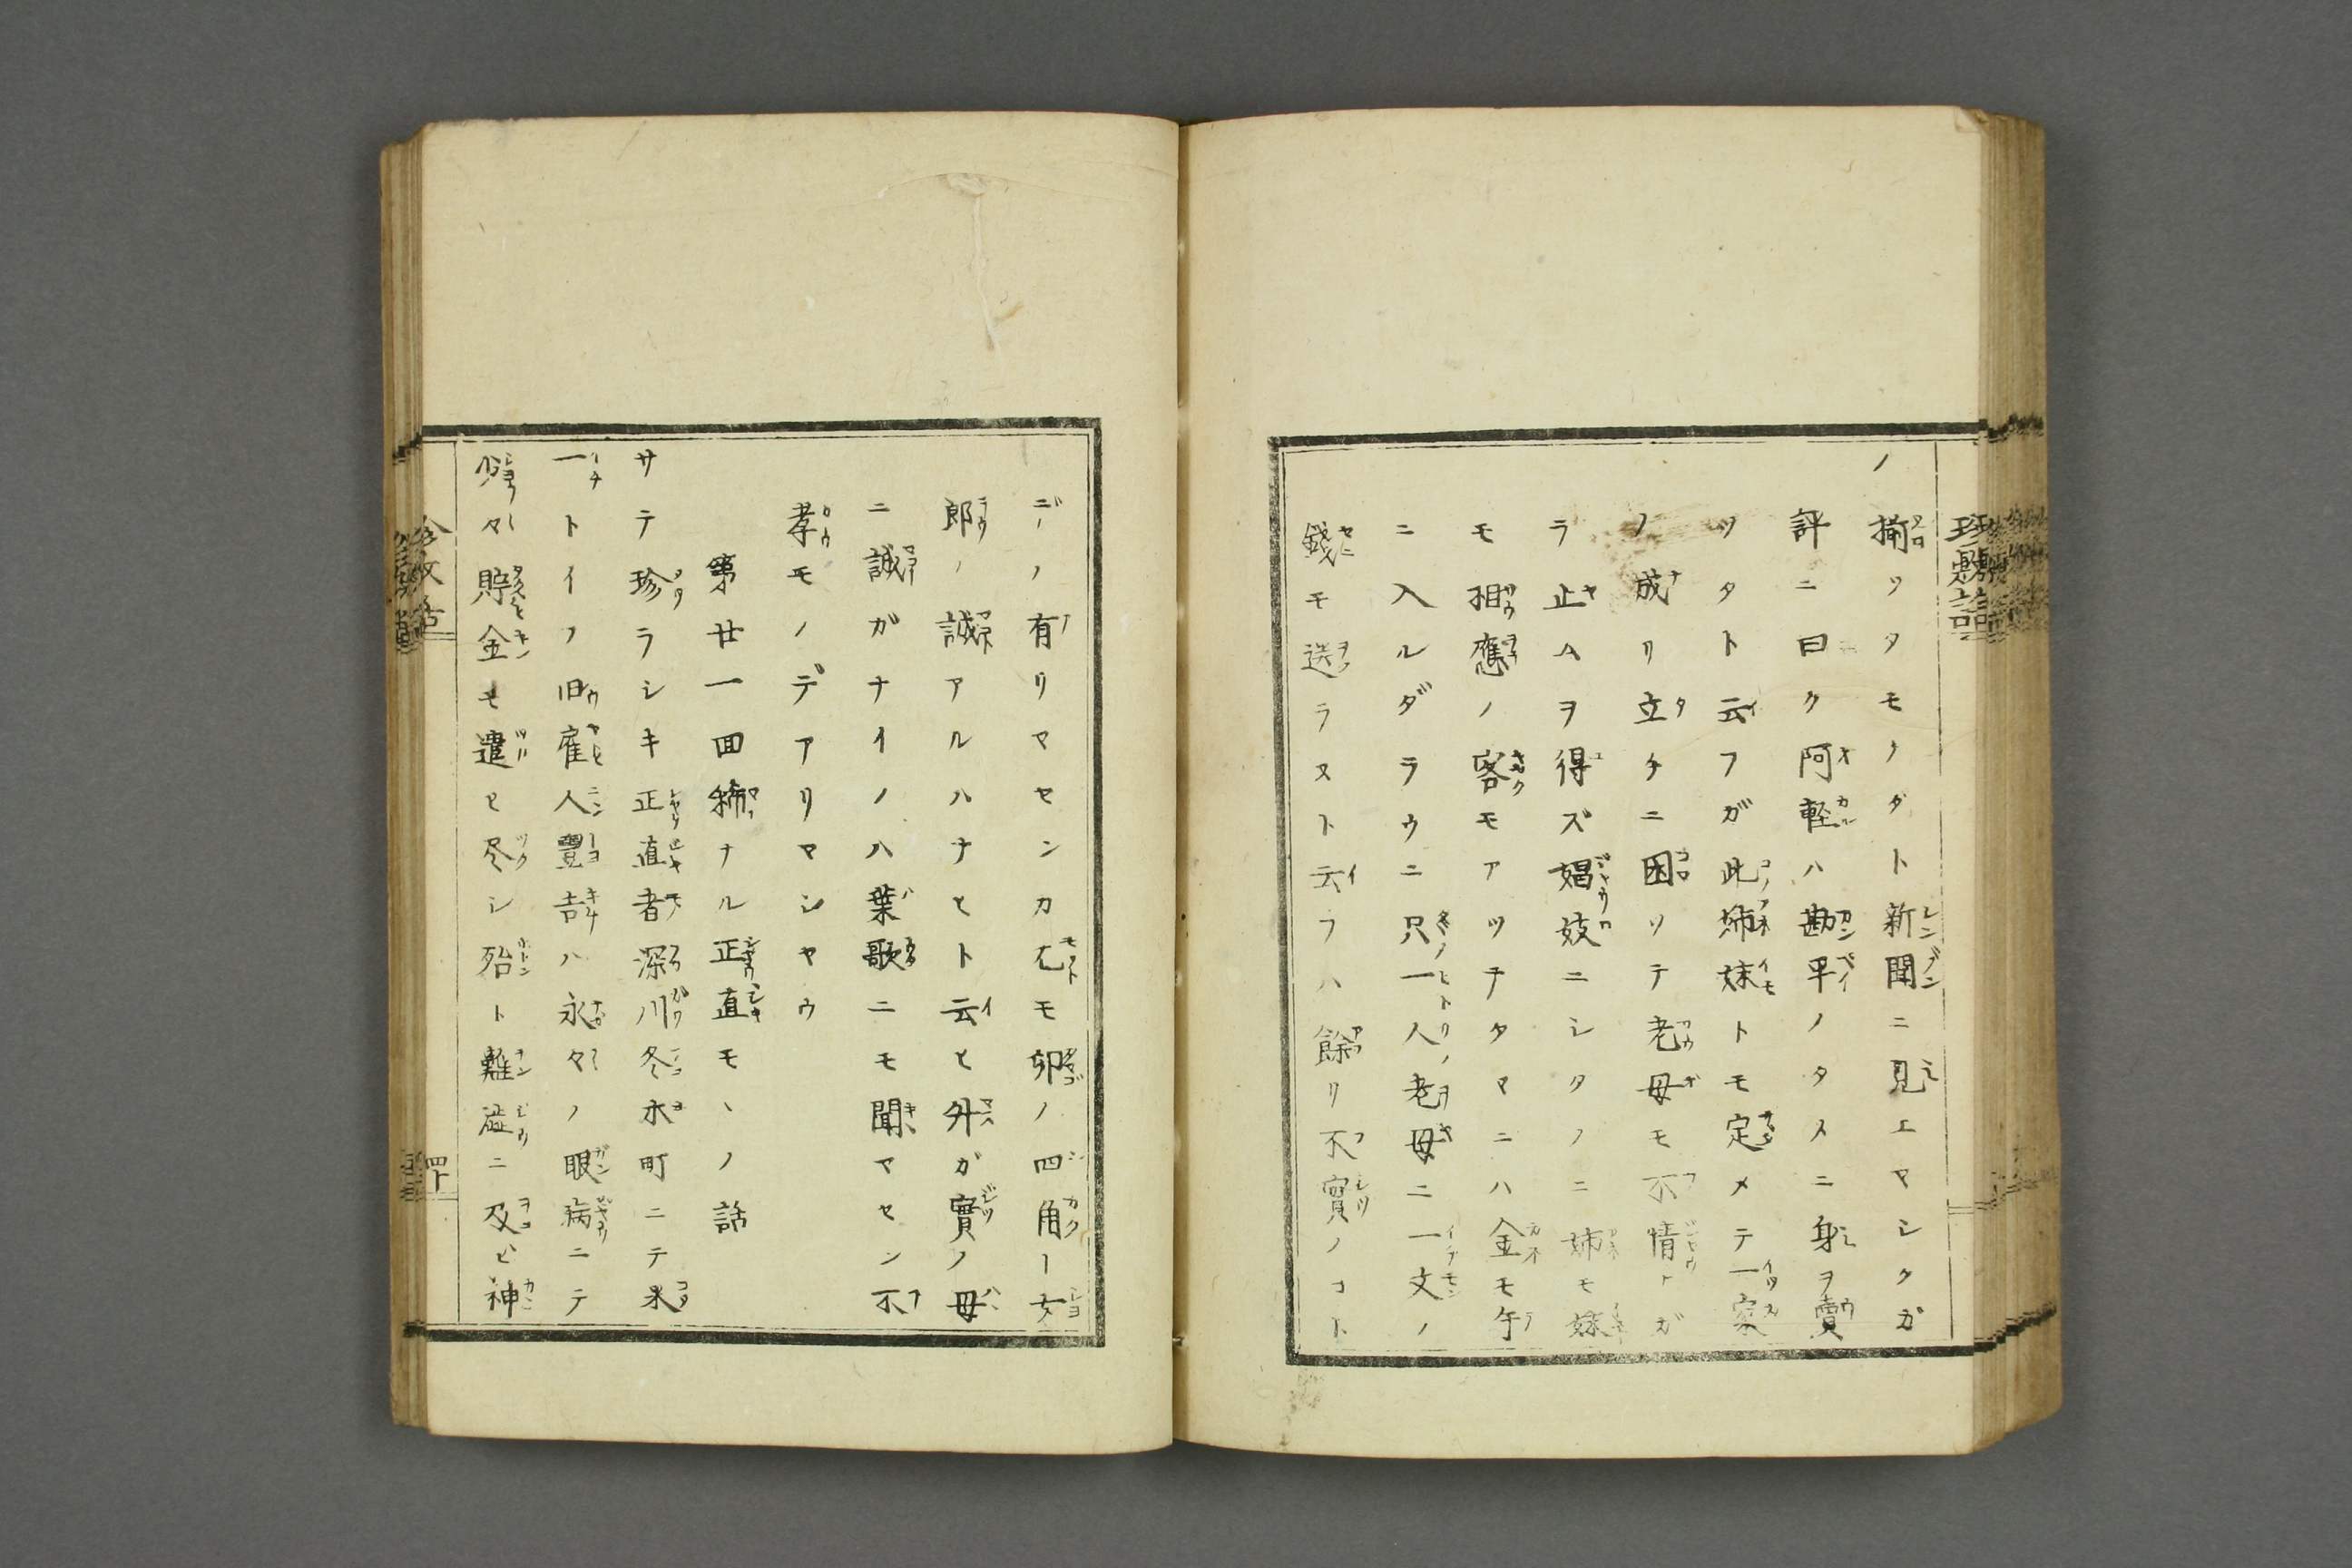 ノ揃ツタモノダト新聞ニ見エマシタガ
評ニ曰ク阿軽ハ勘平ノタメニ身ヲ賣
ツタト云フガ此姉妹トモ定メテ一家
ノ成リ立チニ困ツテ老母モ不情ナガ
ラ止ムヲ得ズ娼妓ニシタノニ姉モ妹
モ相應ノ客モアツテタマニハ金モ手
ニ入ルダラウニ只一人老母ニ一文ノ
錢モ送ラヌト云フハ餘リ不實ノコト
デノ有リマセンカ尤モ卵ノ四角ー女
郎ノ誠アルハナヒト云ヒ外ガ實ノ母
ニ誠ガナイノハ葉歌ニモ聞マセン不
孝モノデアリマシヤウ
第廿一回稀ナル正直モヽノ話
サテ珍ラシキ正直者深川冬木町ニテ米
一トイフ旧雇人豐吉ハ永々ノ眼病ニテ
少々貯金モ遣ヒ尽シ殆ト難澁ニ及ビ神
四十